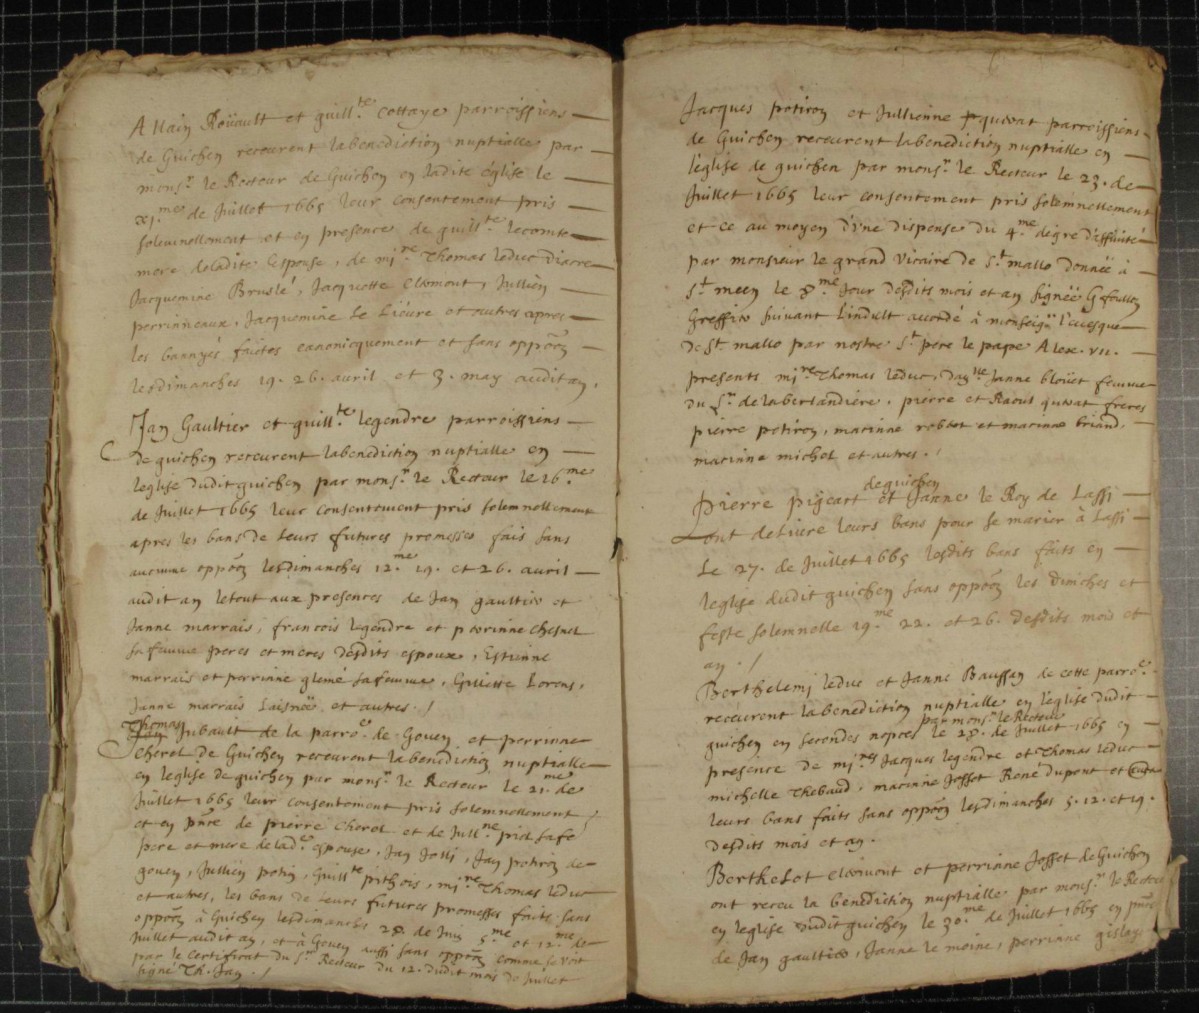 Allain Roüault et guill.te Cottaye parroissiens
de Guichen receurent la benediction nuptialle par
mons.r le Recteur de Guichen en ladite église le
xj.me de Juillet 1665 leur consentement pris
solemnellement et en presence de guill.te lecomte
mere deladite Espouse, de mi.re Thomas leduc diacre
Jacquemine Bruslé, Jacquette Clemont, Jullien
perrinneaux, Jacquemine Le Liéure et autres apres
les bannyes faictes canonicquement et sans oppõn
lesdimanches 19. 26. auril et 3. may audit an.
Jan Gaultier et guill.te legendre parroissiens
de guichen receurent labenediction nuptialle en
leglise dudit guichen par mons.r le Recteur le 26.me
de Juillet 1665 leur consentement pris solemnellement
apres les bans de leurs futures promesses fais sans
aucunne oppõn lesdimanches 12.me 19. et 26. auril
audit an letout aux presences de Jan gaultier et
Janne marrais, francois legendre et perrinne Chesnel
sa femme peres et meres desdits espoux, Estienne
marrais et perrinne glemé safemme, Guillette Lorens,
Janne marrais Laisnée et autres. /
Thomas Jubault de la parro.e de Goven et perrinne
Cherel de Guichen receurent labenediction nuptialle
en leglise de guichen par mons.r le Recteur le 21.me de
Juillet 1665 leur consentement pris solemnellement
et en pñce de pierre Cherel et de Jull.ne sa fe
pere et mere delad.e espouse, Jan Jolli, Jan potiron de
goven, Jullien potin, Guill.te pithois, mi.re Thomas leduc
et autres, les bans de leurs futures promesses faits sans
oppõn à Guichen lesdimanches 28 de Juin 5.me et 12.me de
Juillet audit an, et à Goven aussi sans oppõn comme se voit
par le certificat du S.r Recteur du 12. dudit mois de Juillet
signé Th. Jan. /
Jacques potiron et Jullienne parroissiens
de Guichen receurent labenediction nuptialle en
leglise de guichen par mons.r le Recteur le 23. de
Juillet 1665 leur consentement pris solemnellement
et ce au moyen d'vne dispense du 4.me degre d'affinité
par monsieur le grand vicaire de S.t mallo donnée à
S.t meen le 8.me Jour desdits mois et an signée G foullon
Greffier suivant l'indult accordé à monseig.r l'euesque
de St. mallo par nostre S.t pere le pape Alex. vii.
presents mi.re Thomas leduc, Janne bloüet femme
du S.r delabertandiere, pierre et Raoul freres
pierre potiron, macinne robtet et macinne briand,
macinne michel et autres. /
de guichen
Pierre pigeart et Janne le Roy de Lassi
ont deliuré leurs bans pour se marier à Lassi
Le 27. de Juillet 1665 lesdits bans faits en
leglise dudit guichen sans oppõn les dimches et
feste solemnelle 19.me 22. et 26. desdits mois et
an. /
Berthelemi leduc et Janne Baussan de cette parro.e
receurent labenediction nuptialle en l'église dudit
par mons.r le Recteur
guichen en secondes nopces le 28. de Juillet 1665 en
presence de mi.res Jacques legendre et Thomas leduc
michelle Thebaud, macinne Josset René dupont et
leurs bans faits sans oppõn lesdimanches 5. 12. et 19.
desdits mois et an.
Berthelot clemont et perrinne Josset de Guichen
ont receu la benediction nuptialle par mons.r le Recteur
en leglise dudit guichen le 30.me de Juillet 1665 en pñce
de Jan gaultier, Janne le moine, perrinne